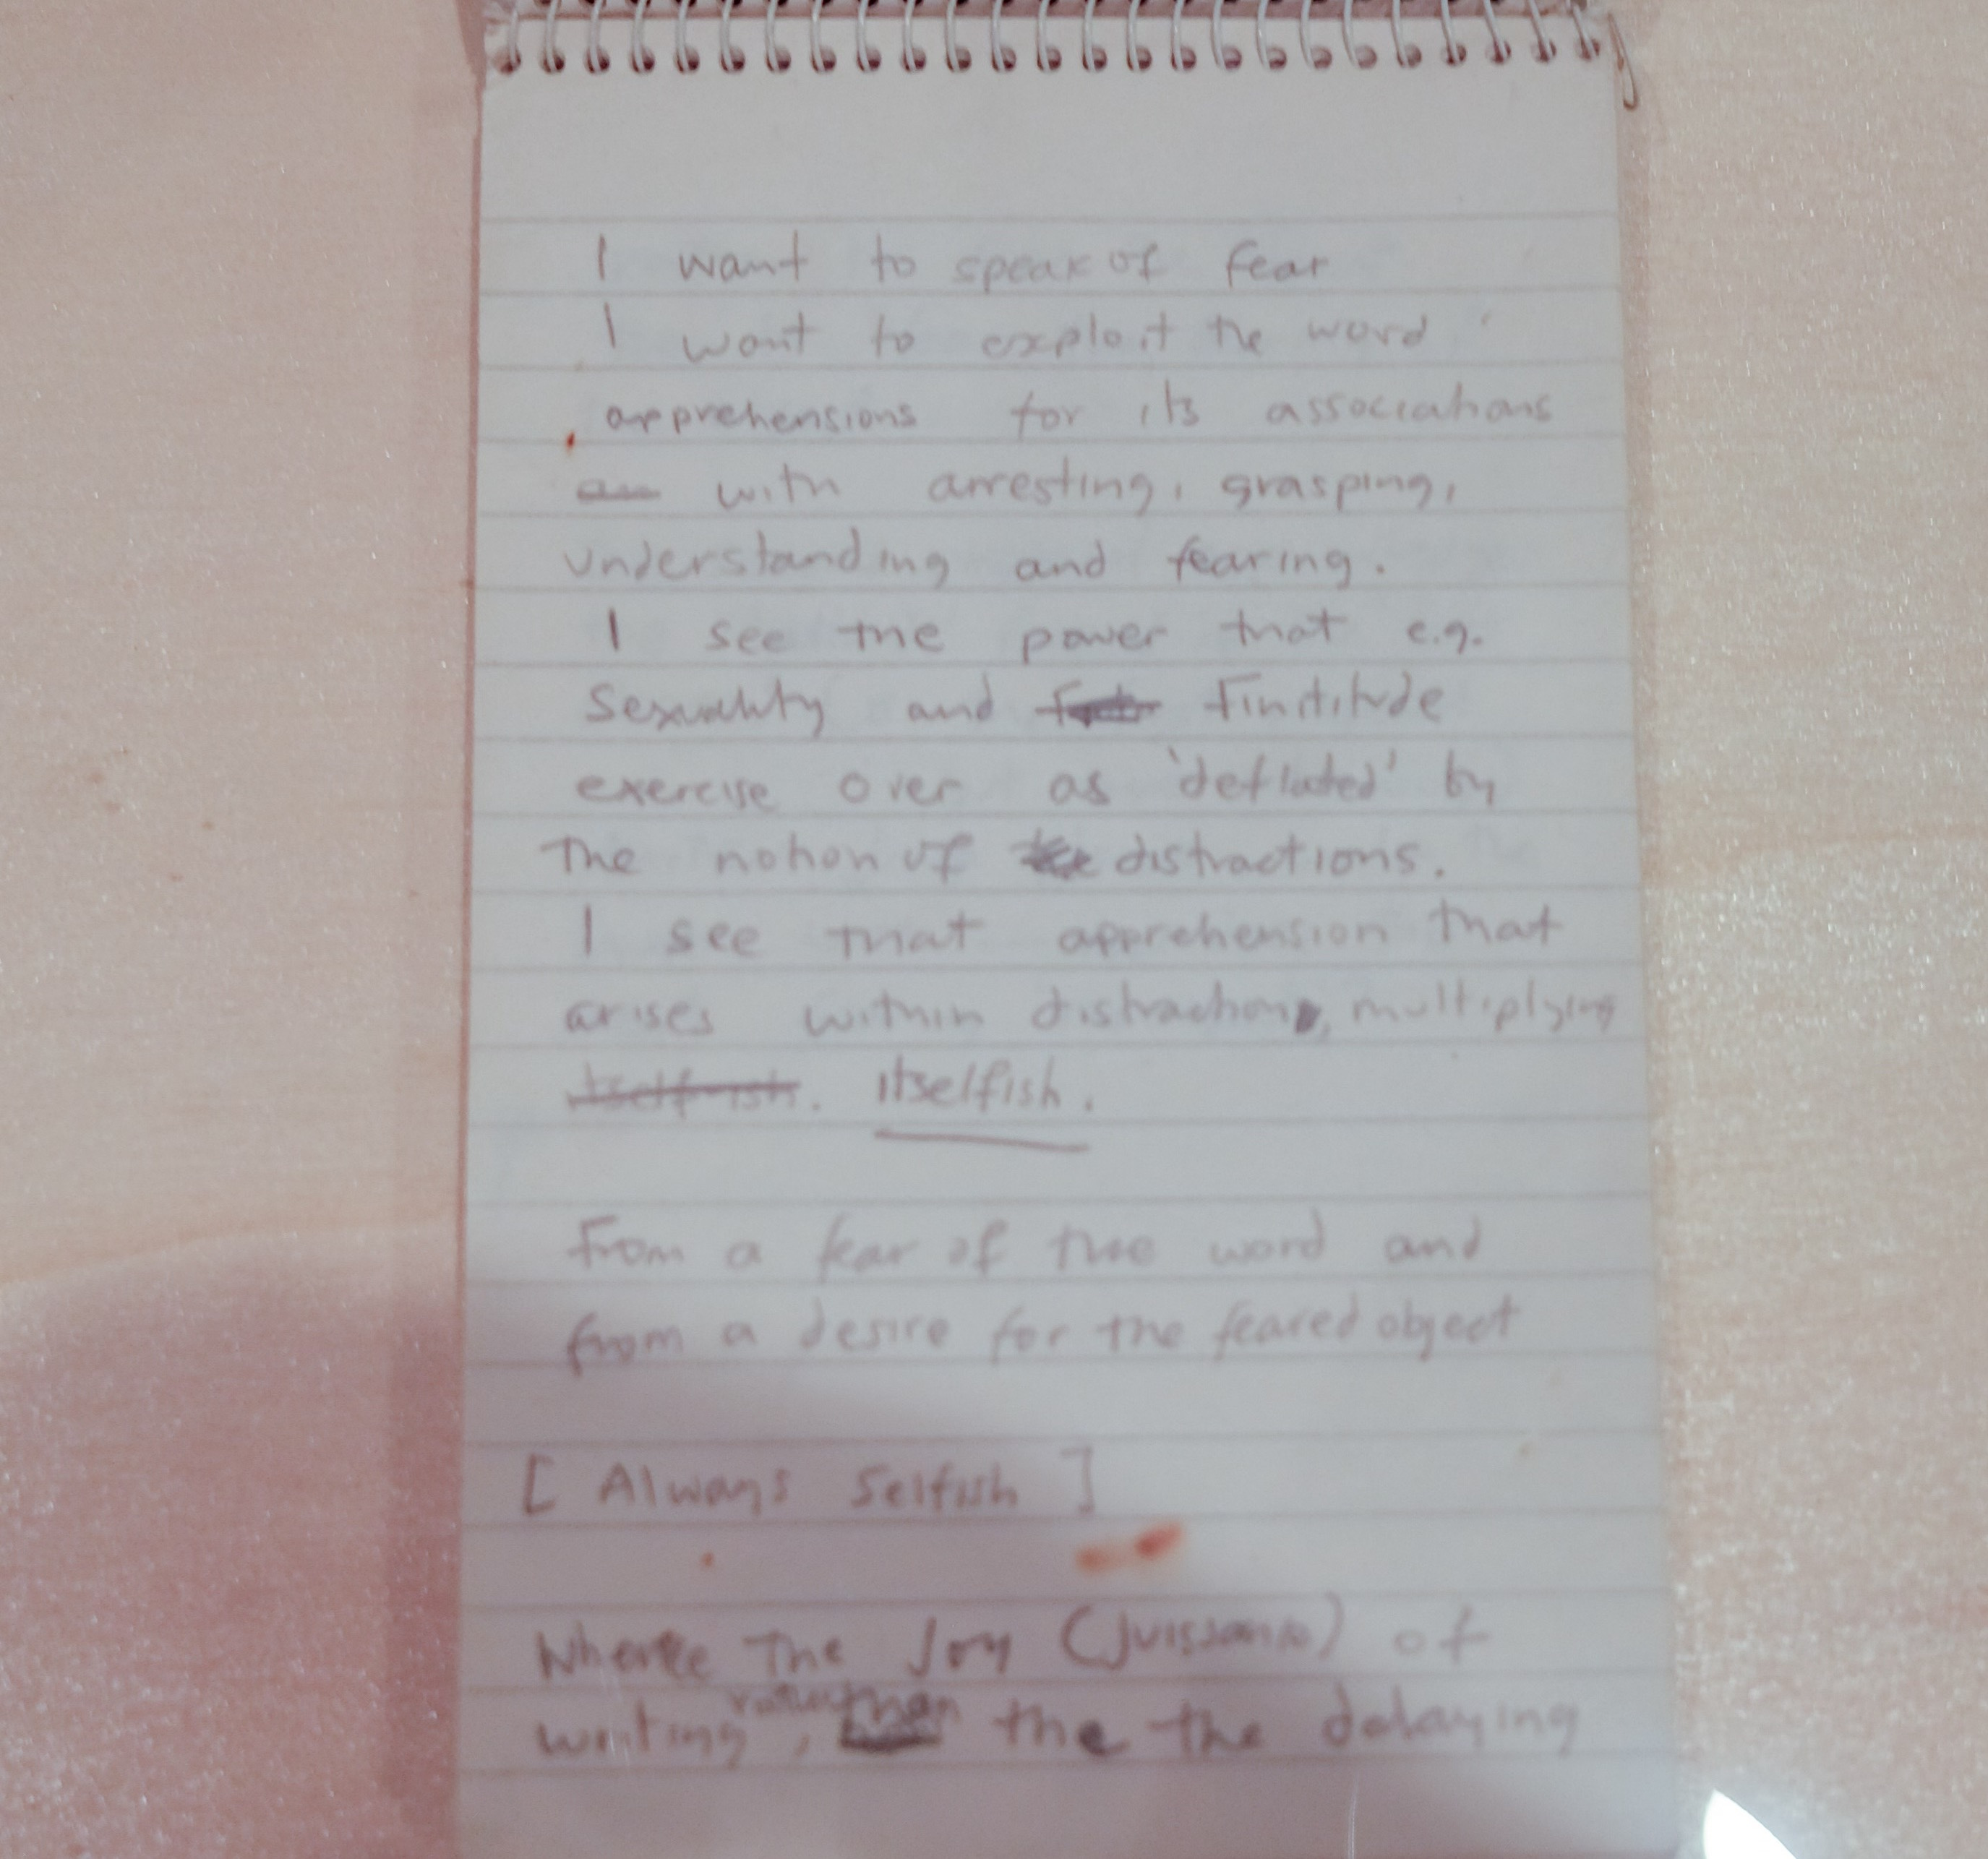 I want to speak of fear
I want to exploit the word
apprehensions for its associations
with arresting, grasping,
understanding and fearing.
I see the power that e.g.
Sexuality and Finititude
exercise over as 'deflated' by
The notion of distractions.
I see that apprehension that
arises within distraction, multiplying
itselfish. itselfish.
From a fear of the word and
from a desire for the feared object
[ Always Selfish ]
Where The Joy of
rather than
writing, the the delaying